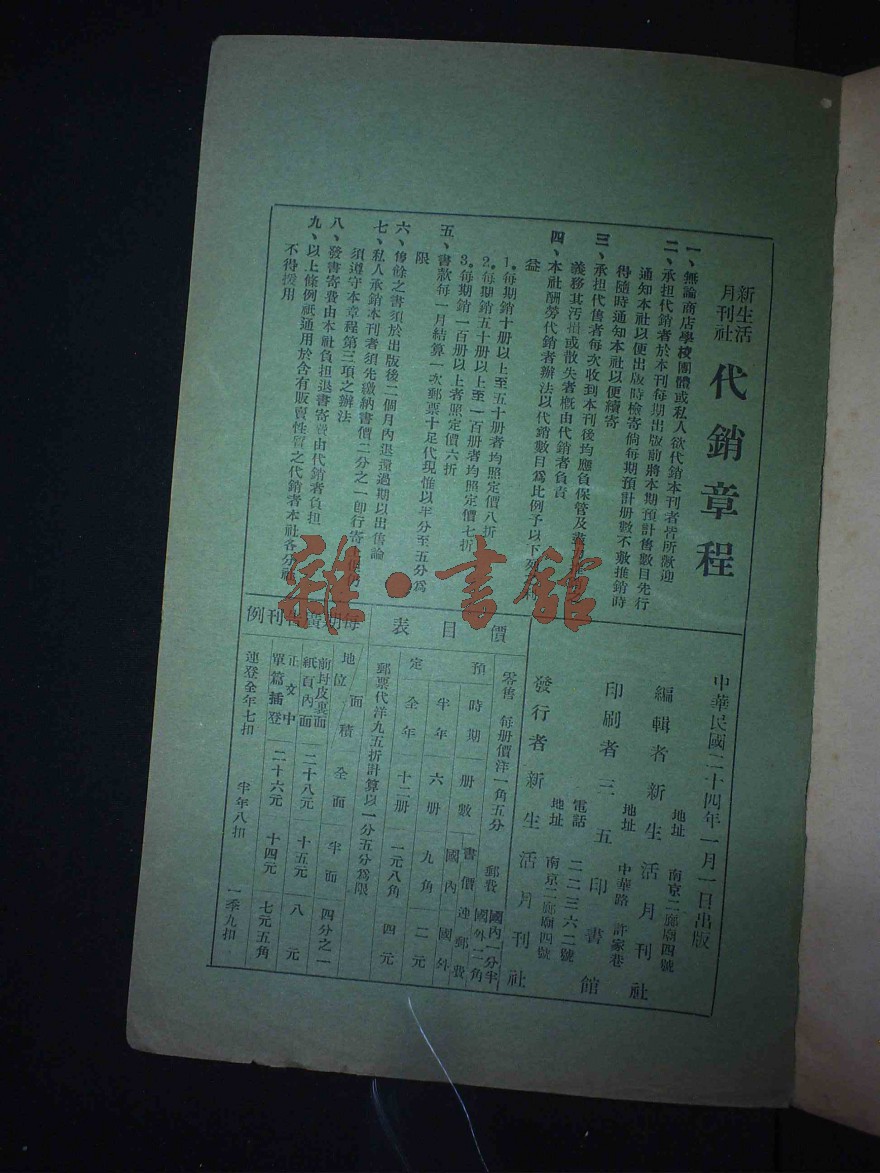 新生活
月刊社
代銷章程
一、無論商店學校團體或私人欲代銷本刊者皆所歡迎
二、承担代銷者於本刊每期出版前將本期預計售數目先行
通知本社以便出版時檢寄倘每期預計册數不敷推銷時
得隨時通知本社以便續寄
三、承担代售者每次收到本刊後均應負保管及
義務其汚損或散失者概由代銷者負責
四、本社酬勞代銷者辦法以代銷數目爲比例予以下列
益
1.每期銷十册以上至五十册者均照定價八折
2.每期銷五十册以上至一百册者均照定價七折
3.每期銷一百册以上者照定價六折
五、書款每一月結算一次郵票十足代現惟以半分至五分爲
限
六、賸餘之書須於出版後二個月內退還過期以出售論
七、私人承銷本刊者須先繳納書價二分之一卽行寄
須遵守本章程第三項之辦法
八、發書寄費由本社負担退書寄費由代銷者負担
九、以上條例祇通用於含有販賣性質之代銷者本社各分社
不得援用
中華民國二十四年一月一日出版
編輯者 新生活月刊社
地址 南京二郎廟四號
印刷者 三五印書館
地址 中華路 許家巷
電話 二二三六二號
發行者 新生活月刊社
地址 南京二郎廟四號
價目表
零售 每册價洋一角五分 郵費 國內一分半 國外二角
預定 時期 册數 書價連郵費 國內 國外
半年 六册 九角 二元
全年 十二册 一元八角 四元
郵票代洋九五折計算以一分五分爲限
每期廣告刊例
地位 面積 全面 半面 四分之一
前封皮裏面 紙頁內面 二十八元 十五元 八元
正文中 單篇插登 二十六元 十四元 七元五角
連登全年七扣 半年八扣 一季九扣
雜·書館